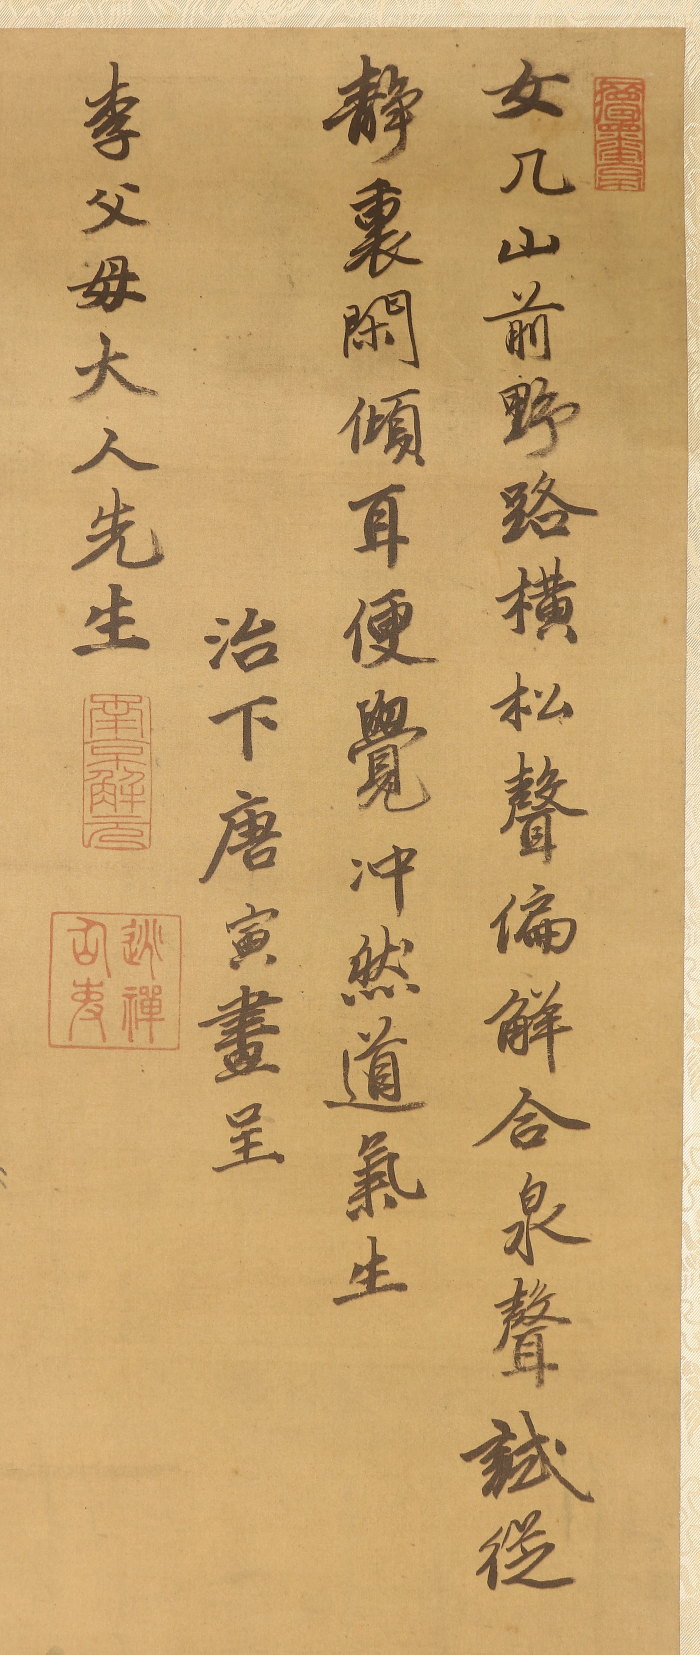 女几山前野路橫松聲偏解合泉聲試從
靜裏閑傾耳便覺冲然道氣生
治下唐寅畫呈
李父母大人先生
南京解元
逃禪仙吏